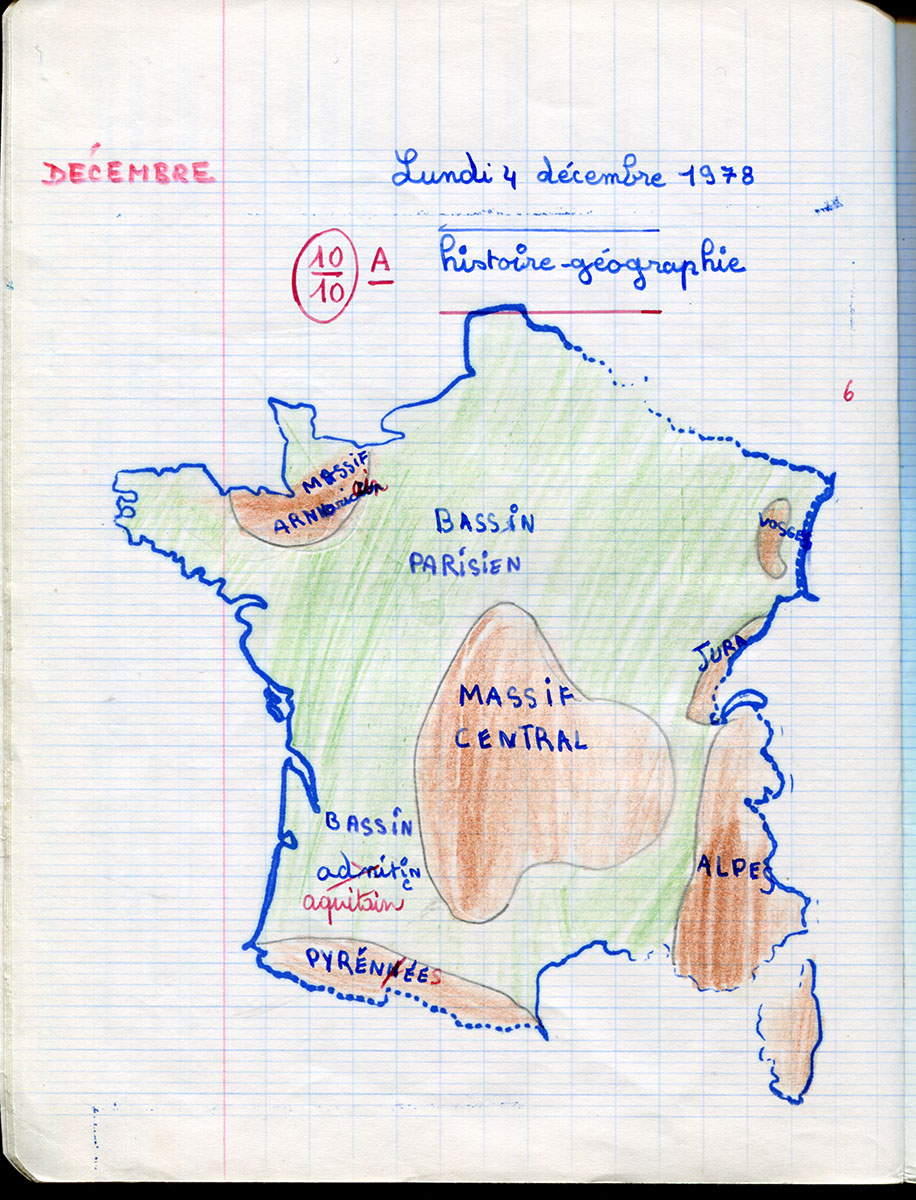 DÉCEMBRE
Lundi 4 décembre 1978
10
10
A
histoire-géographie
6
MASSIF
BASSIN
PARISIEN
VOSGES
JURA
MASSIF
CENTRAL
BASSIN
aquitain
ALPES
PYRÉNNÉES